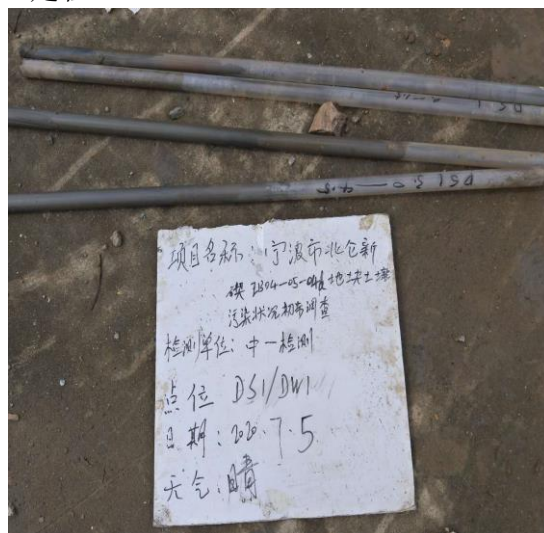 DS1
DS1 3.0—4.5
项目名称：宁波市北仑新
碶ZB04-05-04b地块土壤
污染状况初步调查
检测单位：中一检测
点位 DS1/DW1
日期：2020.7.5
天气：晴